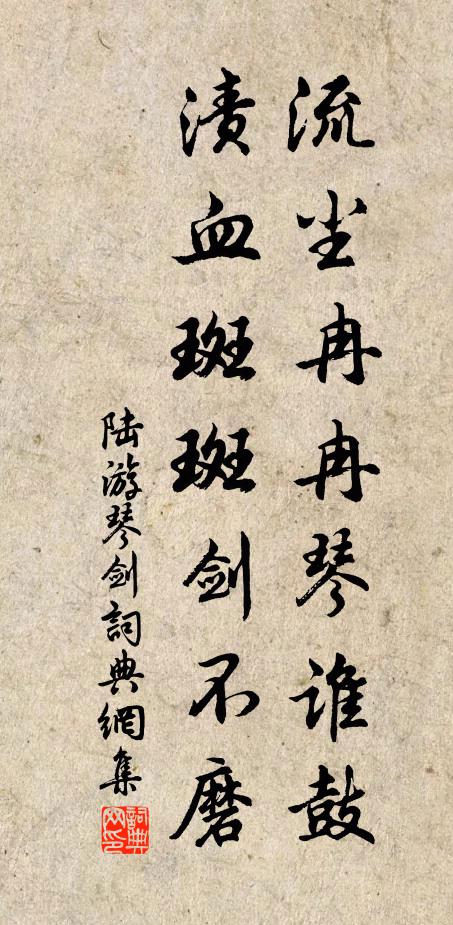 流尘冉冉琴谁鼓
渍血斑斑剑不磨
陆游琴剑詞典網集
詞典
网印